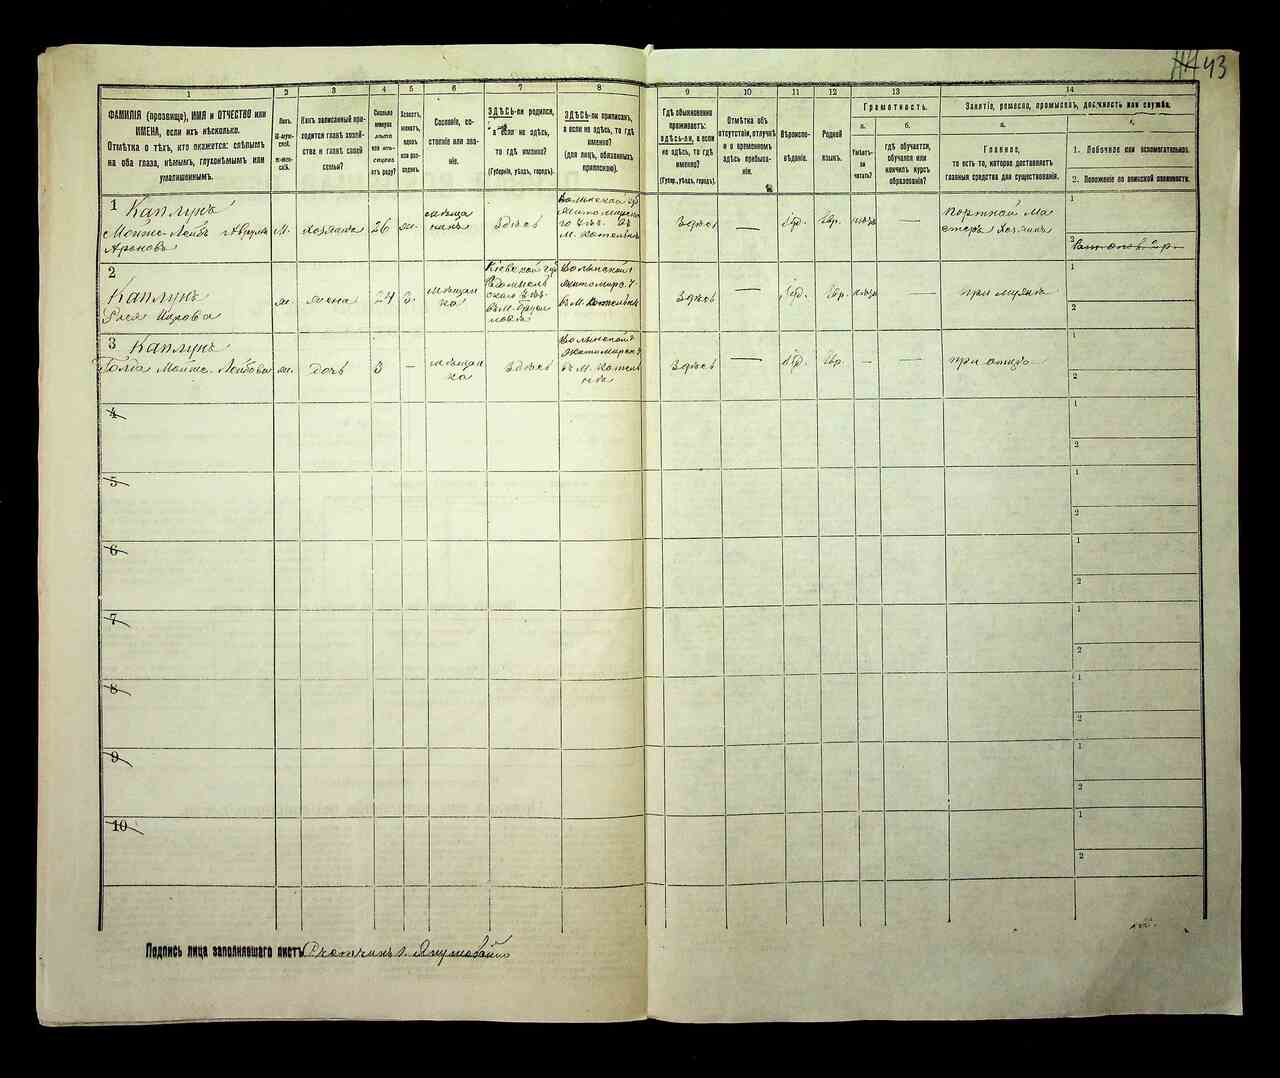 43
1
2
3
4
5
6
7
8
9
10
11
12
13
14
ФАМИЛІЯ (прозвище), ИМЯ и ОТЧЕСТВО или
ИМЕНА, если ихъ нѣсколько.
Отмѣтка о тѣхъ, кто окажется: слѣпымъ
на оба глаза, нѣмымъ, глухонѣмымъ или
умалишеннымъ.
Полъ.
М-муж-
ской.
Ж-жен-
скій.
Какъ записанный при-
ходится главѣ хозяй-
ства и главѣ своей
семьи?
Сколько
минуло
лѣтъ
или мѣ-
сяцевъ
отъ роду?
Холостъ,
женатъ,
вдовъ
или раз-
веденъ.
Сословіе, со-
стояніе или зва-
ніе.
ЗДѢСЬ-ли родился,
а если не здѣсь,
то гдѣ именно?
(Губернія, уѣздъ, городъ).
ЗДѢСЬ-ли приписанъ,
а если не здѣсь, то гдѣ
именно?
(для лицъ, обязанныхъ
припискою).
Гдѣ обыкновенно
проживаетъ:
здѣсь-ли, а если
не здѣсь, то гдѣ
именно?
(Губер., уѣздъ, городъ).
Отмѣтка объ
отсутствіи, отлучкѣ
и о временномъ
здѣсь пребыва-
ніи.
Вѣроиспо-
вѣданіе.
Родной
языкъ.
Грамотность.
а.
Умѣетъ-
ли
читать?
б.
гдѣ обучается,
обучался или
кончилъ курсъ
образованія?
Занятіе, ремесло, промыселъ, должность или служба.
а.
Главное,
то есть то, которое доставляетъ
главныя средства для существованія.
б.
1. Побочное или вспомогательное.
2. Положеніе по воинской повинности.
1 Каплунъ
Мойше-Лейбъ Авруммъ
Ароновъ
М.
хозяинъ
26
ж.
мѣща
нинъ
Здѣсь
Волынской губ
Житомирска
го уѣз. въ
м. Котельнѣ
Здѣсь
—
Іуд.
Евр.
—
Портной Ма
стеръ Хозяинъ
1
2
2
Каплунъ
ж.
жена
24
З.
мѣщан
ка
Кіевской губ
Радомысль
скаго уѣз.
въ м. Брусил
Волынской
Житомирс. у
въ м. Котельнѣ
Здѣсь
—
Іуд.
Евр.
—
при мужѣ
1
2
3 Каплунъ
Голда Мойше-Лейбова
ж.
дочь
3
—
мѣщан
ка
Здѣсь
Волынской
Житомирск
въ м. Котель
Здѣсь
—
Іуд.
Евр.
—
—
при отцѣ
1
2
4
1
2
5
1
2
6
1
2
7
1
2
8
1
2
9
1
2
10
1
2
Подпись лица заполнявшаго листъ